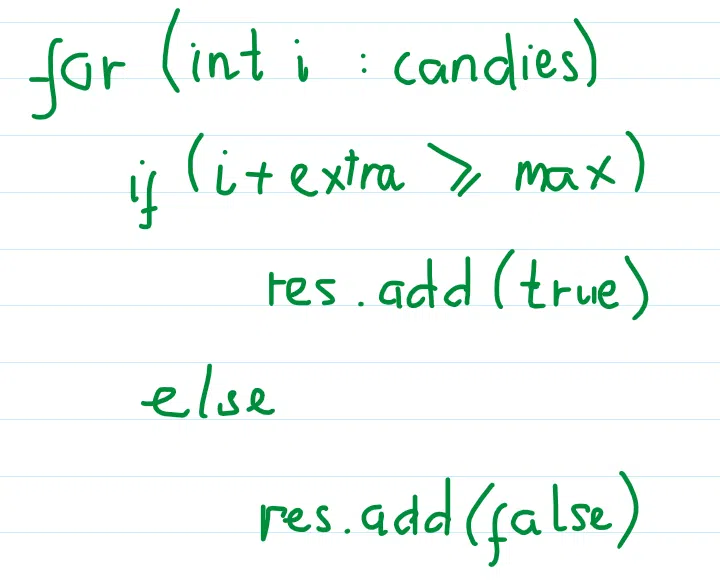 for (int i : candies)
if (i + extra ⩾ max)
res.add(true)
else
res.add(false)